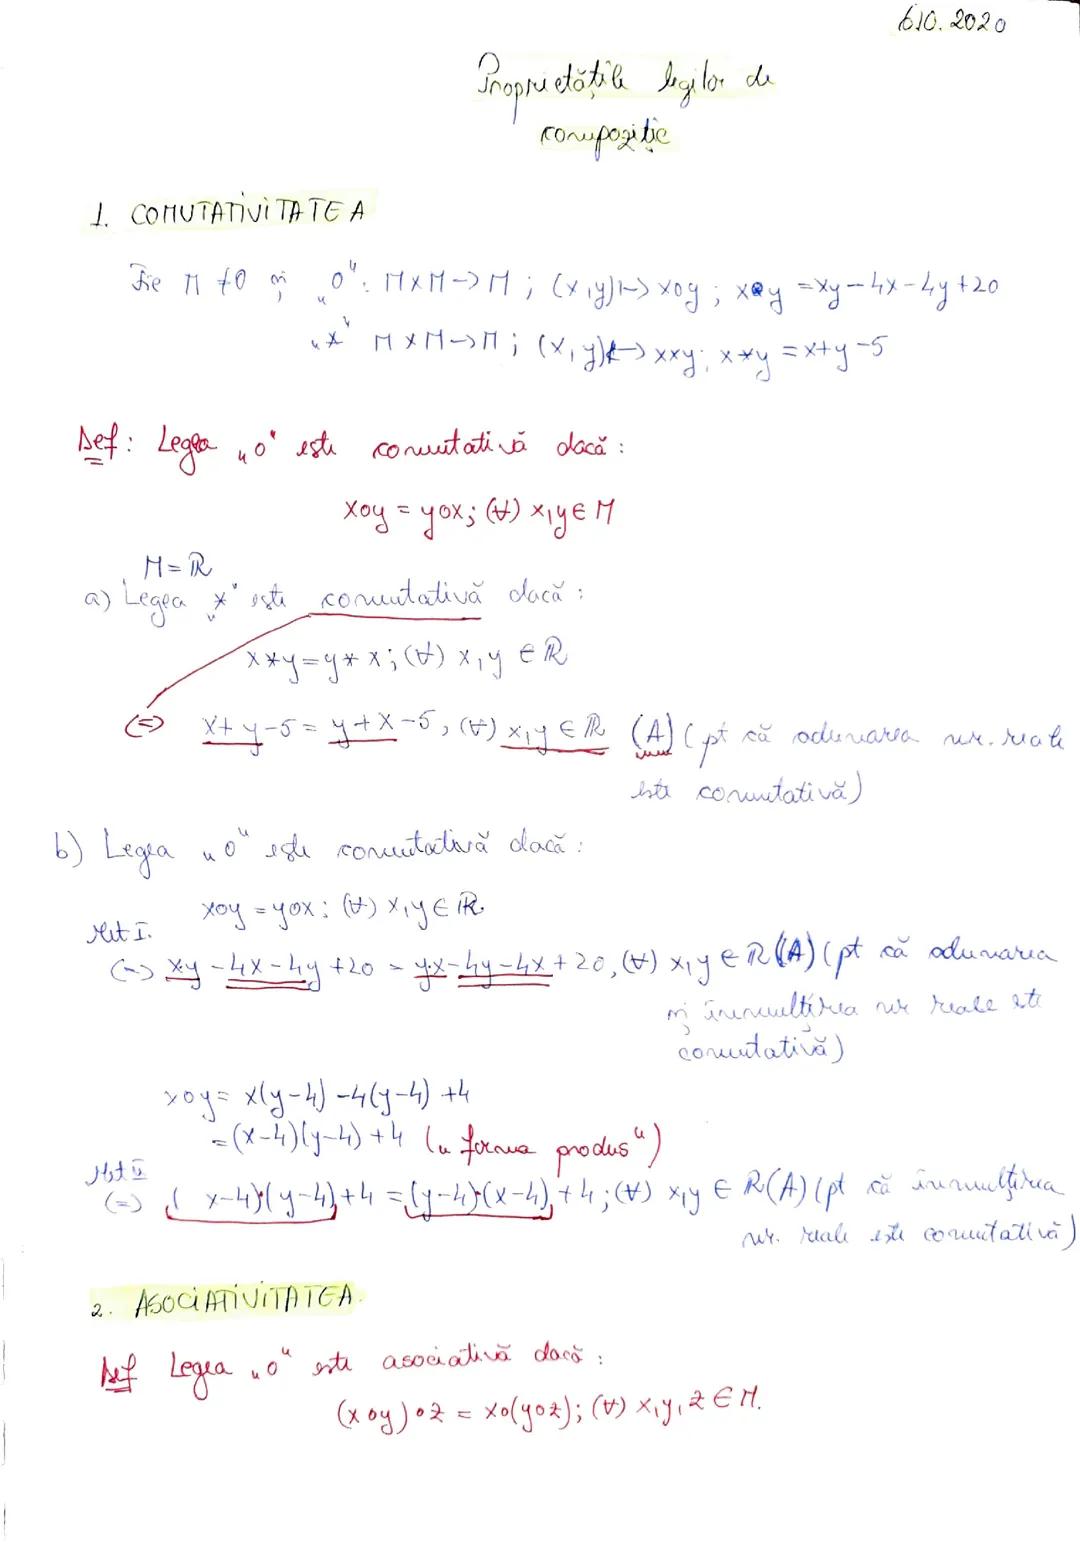 6.10.2020
Proprietățile legilor de
compoziție
1. COMUTATIVITATEA
Fie M ≠ 0 și „o": M×M->M; (x,y)|->xoy; xoy =xy-4x-4y+20
„*" M×M->M; (x,y)|->x*y; x*y =x+y-5
Def: Legea „o" este comutativă dacă:
xoy = yox; (∀) x,y∈M
M=ℝ
a) Legea „*" este comutativă dacă:
x*y=y*x; (∀) x,y ∈ℝ
(=) x+y-5 = y+x-5, (∀) x,y ∈ℝ (A) (pt că adunarea nr. reale
este comutativă)
b) Legea „o" este comutativă dacă:
xoy =yox; (∀) x,y∈ℝ.
Met I.
(=) x·y -4x-4y+20 = y·x-4y-4x+20, (∀) x,y ∈ℝ (A) (pt că adunarea
și înmulțirea nr reale este
comutativă)
xoy= x(y-4) -4(y-4) +4
=(x-4)(y-4) +4 („forma produs")
Met II
(=) (x-4)·(y-4)+4 =(y-4)·(x-4)+4; (∀) x,y ∈ ℝ(A) (pt că înmulțirea
nr. reale este comutativă)
2. ASOCIATIVITATEA.
Def Legea „o" este asociativă dacă:
(xoy)oz = xo(yoz); (∀) x,y,z ∈M.